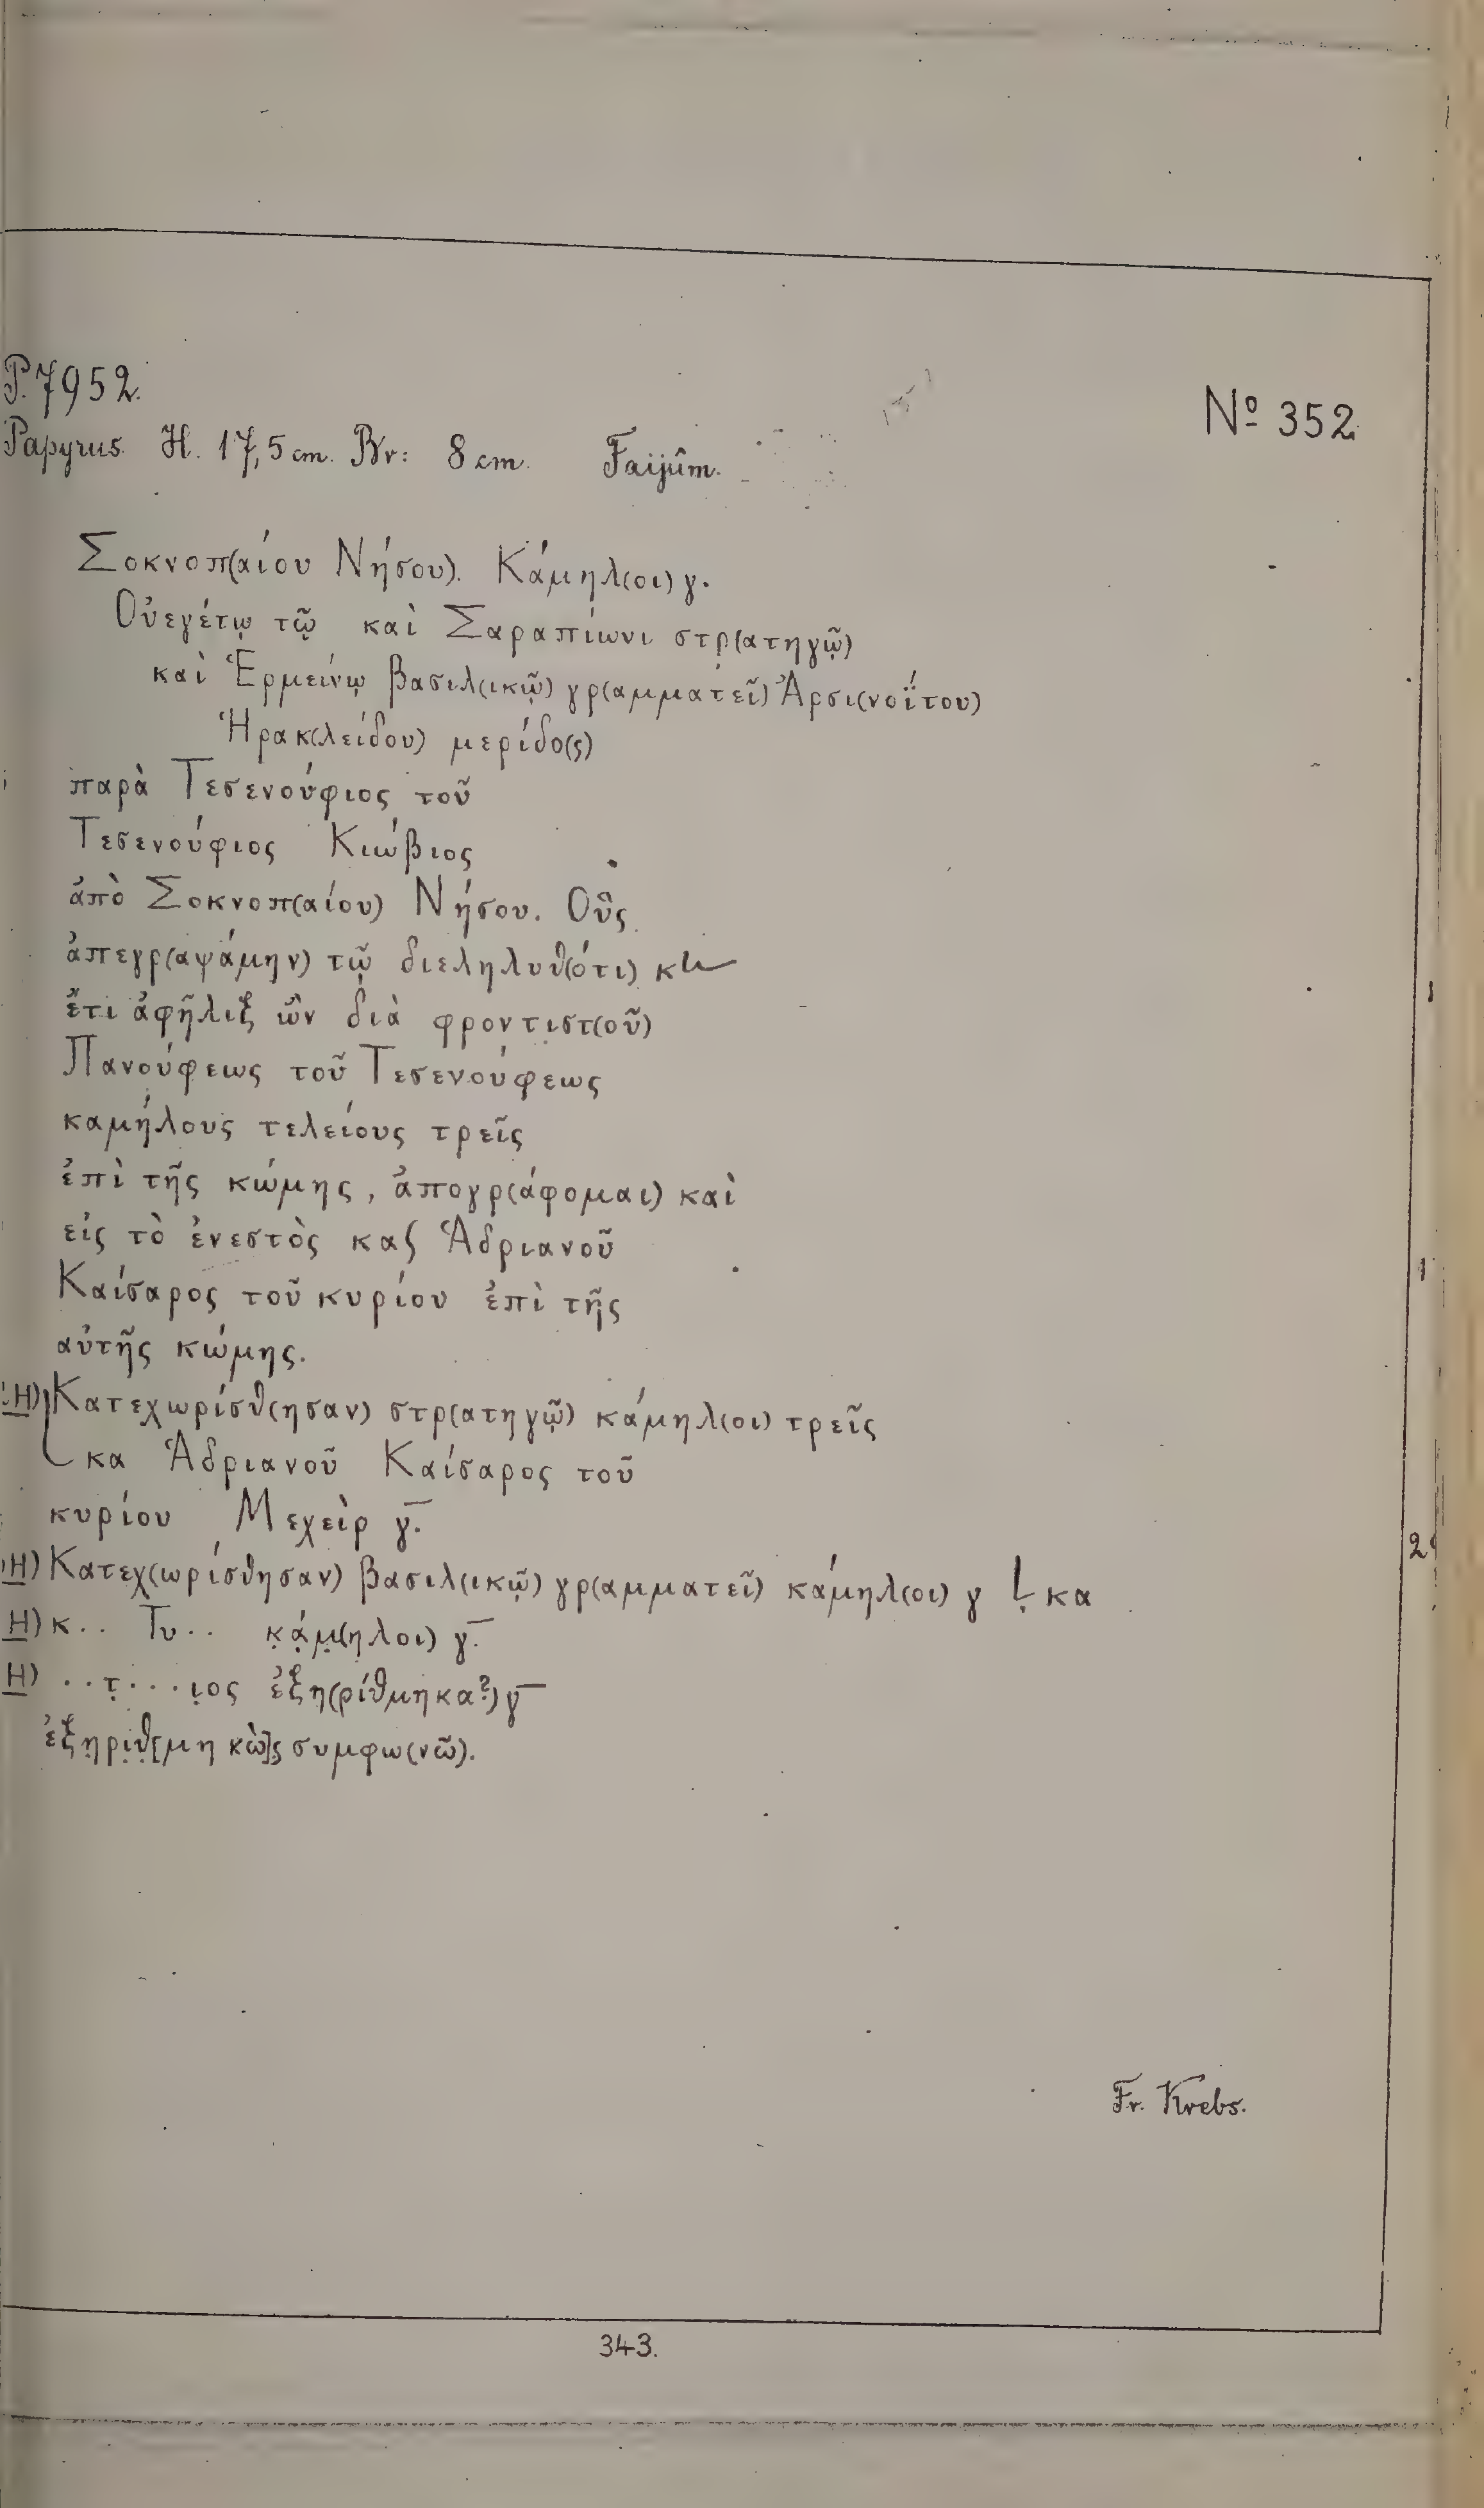 P. 7952.
Nº 352
Papyrus. H. 17,5 cm. Br: 8 cm. Faijûm.
Σοκνοπ(αίου Νήσου). Κάμηλ(οι) γ.
Οὐεγέτῳ τῷ καὶ Σαραπίωνι στρ(ατηγῷ)
καὶ Ἑρμείνῳ βασιλ(ικῷ) γρ(αμματεῖ) Ἀρσι(νοΐτου)
Ἡρακ(λείδου) μερίδο(ς)
παρὰ Τεσενούφιος τοῦ
Τεσενούφιος Κιώβιος
ἀπὸ Σοκνοπ(αίου) Νήσου. Οὓς
ἀπεγρ(αψάμην) τῷ διεληλυθ(ότι) κ
ἔτι ἀφῆλιξ ὢν διὰ φροντιστ(οῦ)
Πανούφεως τοῦ Τεσενούφεως
καμήλους τελείους τρεῖς
ἐπὶ τῆς κώμης, ἀπογρ(άφομαι) καὶ
εἰς τὸ ἐνεστὸς κα Ἁδριανοῦ
Καίσαρος τοῦ κυρίου ἐπὶ τῆς
αὐτῆς κώμης.
H) Κατεχωρίσθ(ησαν) στρ(ατηγῷ) κάμηλ(οι) τρεῖς
κα Ἁδριανοῦ Καίσαρος τοῦ
κυρίου Μεχεὶρ γ̅.
H) Κατεχ(ωρίσθησαν) βασιλ(ικῷ) γρ(αμματεῖ) κάμηλ(οι) γ Ļ κα
H) κ.. Τυ.. κ̣ά̣μ̣(ηλοι) γ̅.
H) ..τ̣....ι̣ος ἐξη(ρίθμηκα?) γ̅
ἐξη̣ρι̣θ̣[μηκὼ]ς̣ συμφω(νῶ).
Fr. Krebs.
343.